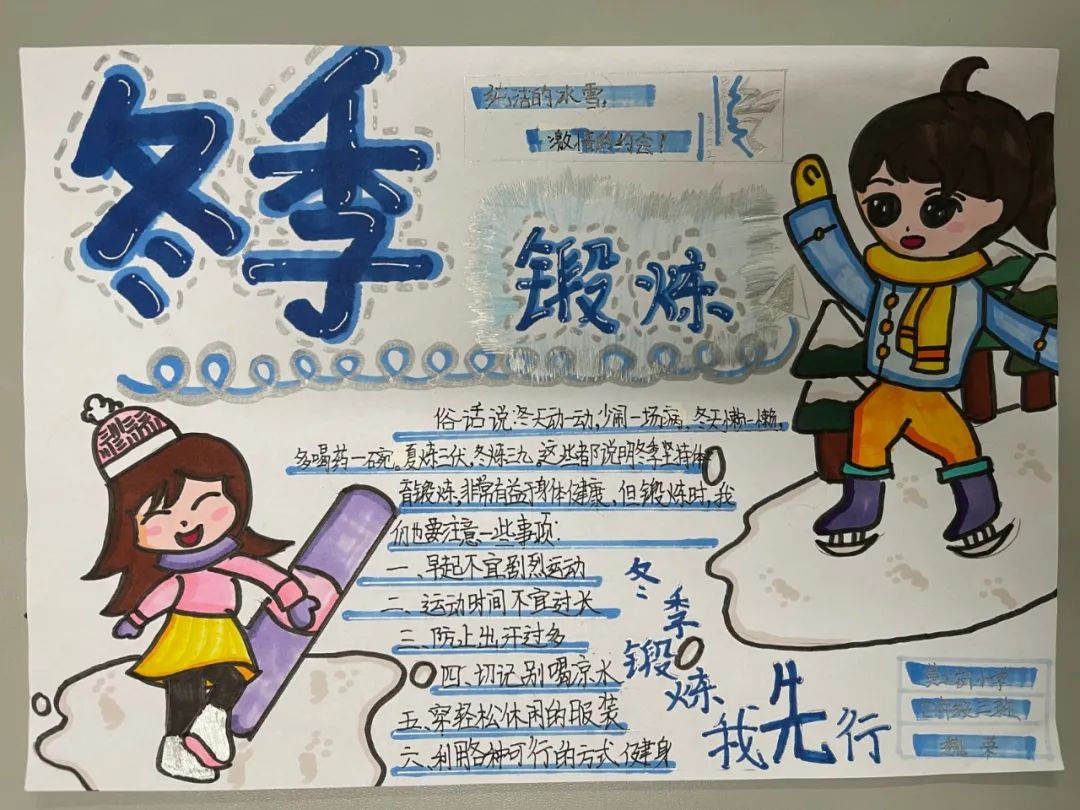 冬季
纯洁的冰雪,
激情的约会!
锻炼
俗话说:冬天动一动,少闹一场病,冬天懒一懒,
多喝药一碗。夏炼三伏,冬炼三九。这些都说明冬季坚持体
育锻炼,非常有益于身体健康,但锻炼时,我
们也要注意一些事项:
一、早起不宜剧烈运动
二、运动时间不宜过长
三、防止出汗过多
四、切记别喝凉水
五、穿轻松休闲的服装
六、利用各种可行的方式健身
冬季锻炼
我先行
小学
年级三班